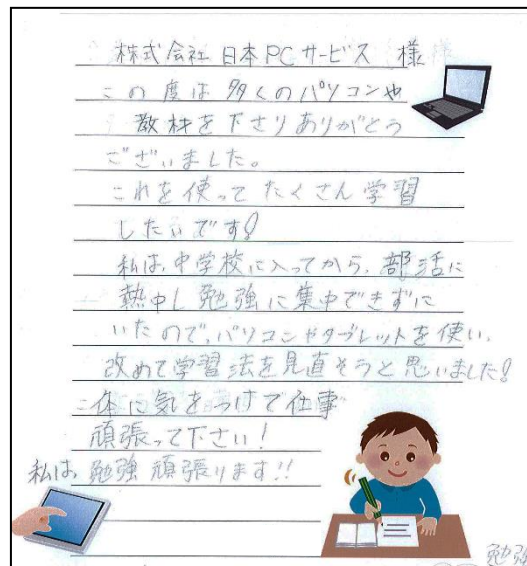 株式会社 日本PCサービス 様
この度は 多くのパソコンや
教材を下さりありがとう
ございました。
これを使って たくさん学習
したいです!
私は、中学校に入ってから、部活に
熱中し勉強に集中できずに
いたので、パソコンやタブレットを使い、
改めて学習法を見直そうと思いました!
体に気をつけて仕事
頑張って下さい!
私は、勉強 頑張ります!!
勉強